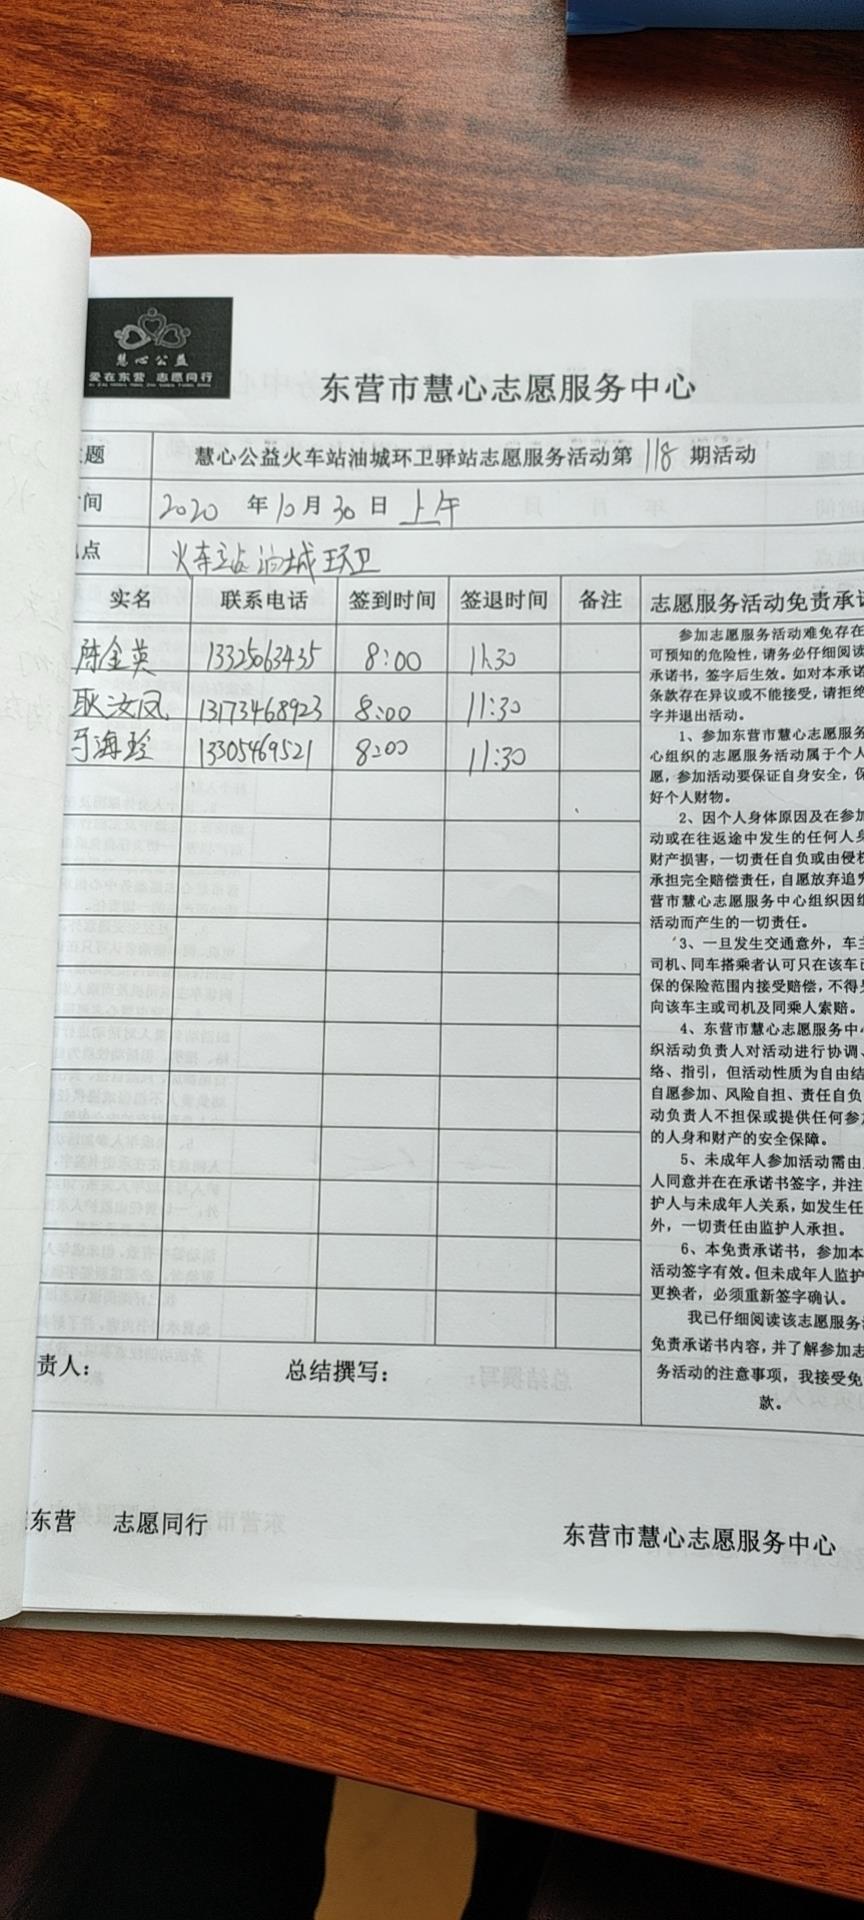 慧心公益
爱在东营 志愿同行
东营市慧心志愿服务中心
题 慧心公益火车站油城环卫驿站志愿服务活动第118期活动
间 2020年10月30日 上午
点 火车站油城环卫
实名 联系电话 签到时间 签退时间 备注 志愿服务活动免责承诺
陈金英 1325063435 8:00 11:30
耿汝凤 13173468923 8:00 11:30
于海珍 13305469521 8:00 11:30
参加志愿服务活动难免存在
可预知的危险性,请务必仔细阅读
承诺书,签字后生效。如对本承诺
条款存在异议或不能接受,请拒绝
字并退出活动。
1、参加东营市慧心志愿服务
心组织的志愿服务活动属于个人
愿,参加活动要保证自身安全,保
好个人财物。
2、因个人身体原因及在参加
动或在往返途中发生的任何人身
财产损害,一切责任自负或由侵权
承担完全赔偿责任,自愿放弃追究
营市慧心志愿服务中心组织因组
活动而产生的一切责任。
3、一旦发生交通意外,车主
司机、同车搭乘者认可只在该车已
保的保险范围内接受赔偿,不得另
向该车主或司机及同乘人索赔。
4、东营市慧心志愿服务中心
织活动负责人对活动进行协调、
络、指引,但活动性质为自由结
自愿参加、风险自担、责任自负
动负责人不担保或提供任何参加
的人身和财产的安全保障。
5、未成年人参加活动需由
人同意并在在承诺书签字,并注
护人与未成年人关系,如发生任
外,一切责任由监护人承担。
6、本免责承诺书,参加本
活动签字有效。但未成年人监护
更换者,必须重新签字确认。
我已仔细阅读该志愿服务活
免责承诺书内容,并了解参加志
务活动的注意事项,我接受免
款。
责人: 总结撰写:
东营 志愿同行 东营市慧心志愿服务中心